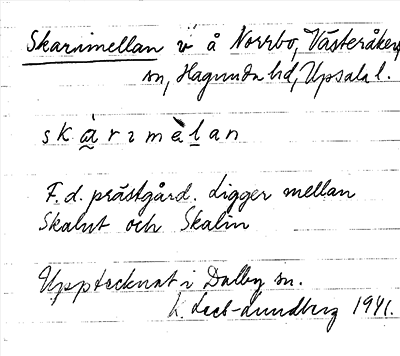 Skarimellan v å Norrbo, Västeråkers
sn, Hagunda hd, Upsala l.
skàrımèlan
F.d. prästgård. Ligger mellan
Skalut och Skalin
Upptecknat i Dalby sn.
Leet-Lundberg 1941.